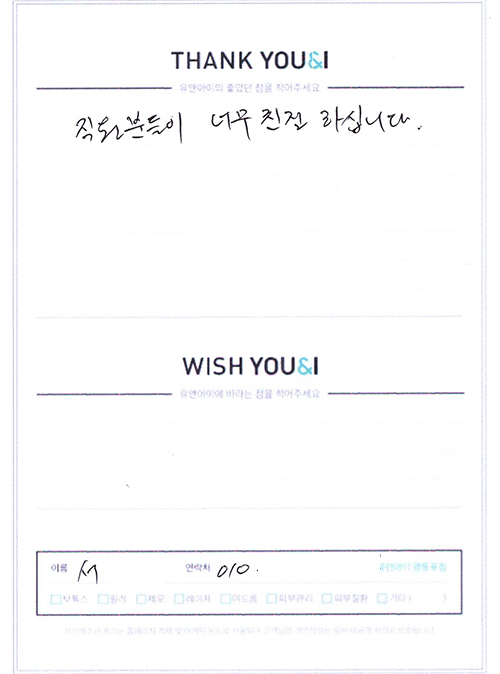 THANK YOU&I
유앤아이의 좋았던 점을 적어주세요
직원분들이 너무 친절 하십니다.
WISH YOU&I
유앤아이에 바라는 점을 적어주세요
이름 서 연락처 010. 유앤아이 영등포점
보톡스 필러 제모 레이저 여드름 피부관리 피부질환 기타 ( )